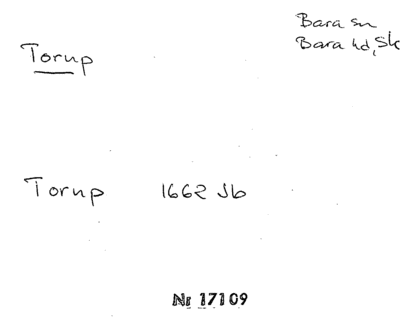 Torup
Bara sn
Bara hd, Sk
Torup 1662 Jb
Nr 17109